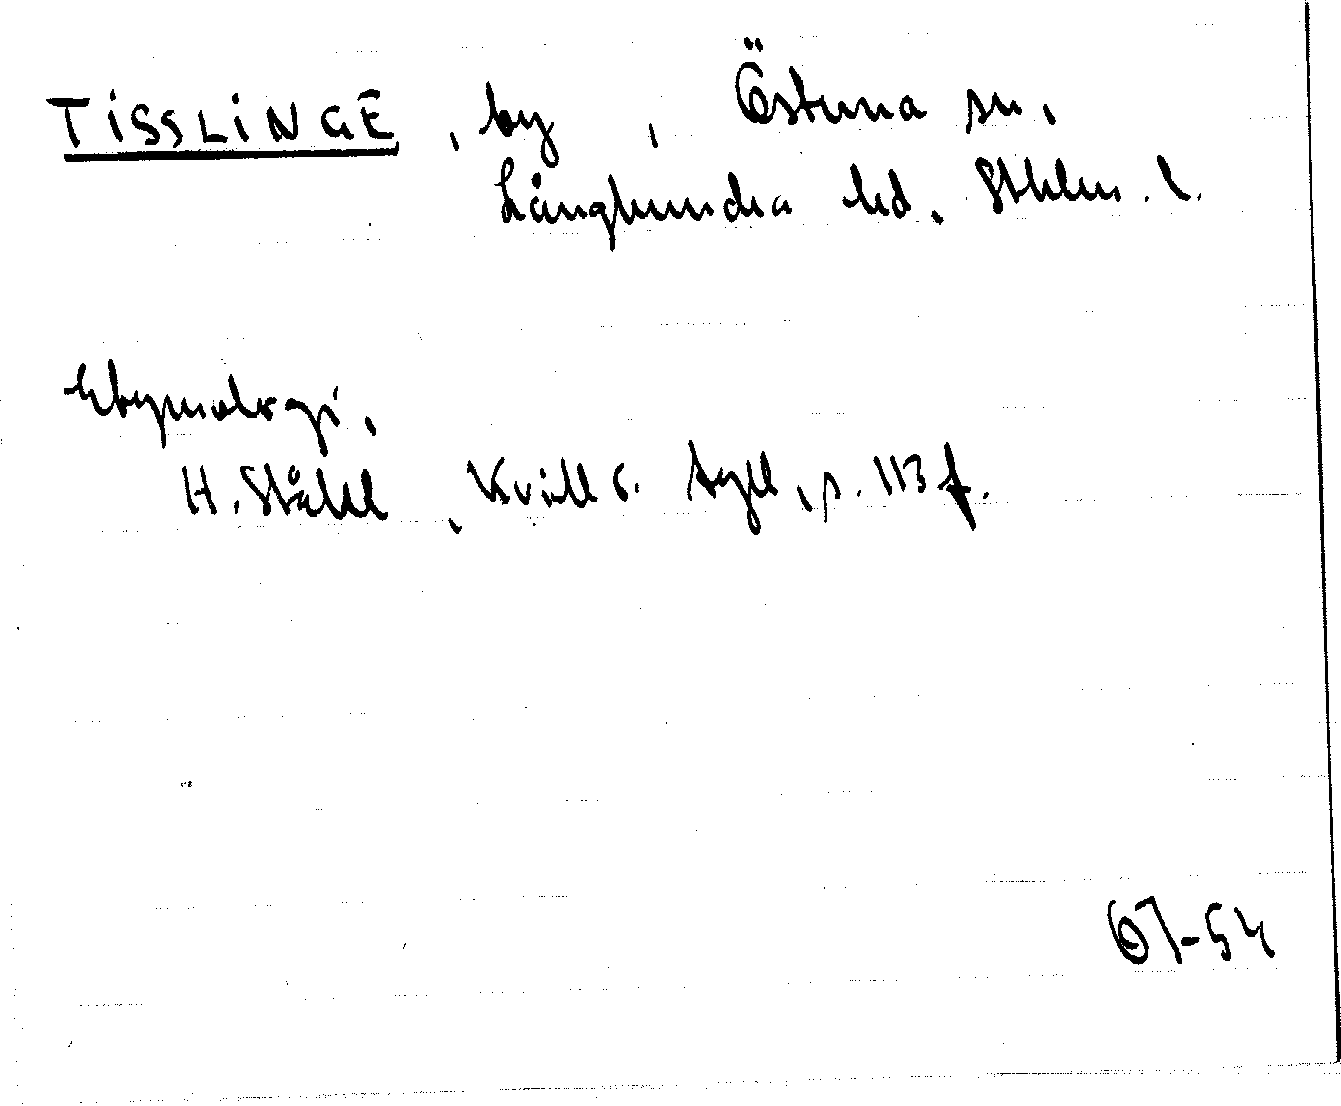 TISSLINGE, by, Östuna sn,
Långhundra hd. Sthlms. l.
Etymologi,
H. Ståhl, Kvill o. tyll, s. 113 f.
67-54